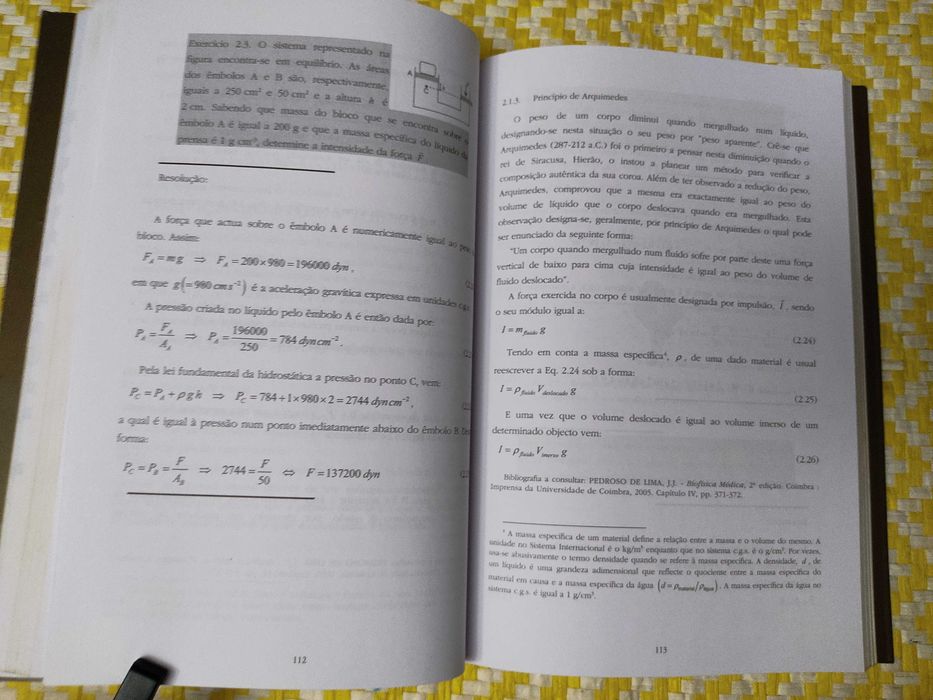 Exercício 2.3. O sistema representado na
figura encontra-se em equilíbrio. As áreas
dos êmbolos A e B são, respectivamente,
iguais a 250 cm² e 50 cm² e a altura h é
2 cm. Sabendo que massa do bloco que se encontra sobre o
êmbolo A é igual a 200 g e que a massa específica do líquido da
prensa é 1 g cm⁻³, determine a intensidade da força F.
A
C
Resolução:
A força que actua sobre o êmbolo A é numericamente igual ao peso
bloco. Assim:
F_A = mg ⇒ F_A = 200×980 = 196000 dyn,
em que g(= 980 cm s⁻²) é a aceleração gravítica expressa em unidades c.g.s.
A pressão criada no líquido pelo êmbolo A é então dada por:
P_A = F_A/A_A ⇒ P_A = 196000/250 = 784 dyn cm⁻².
Pela lei fundamental da hidrostática a pressão no ponto C, vem:
P_C = P_A + ρ g h ⇒ P_C = 784 + 1×980×2 = 2744 dyn cm⁻²,
a qual é igual à pressão num ponto imediatamente abaixo do êmbolo B
forma:
P_C = P_B = F/A_B ⇒ 2744 = F/50 ⇔ F = 137200 dyn
112
2.1.3. Princípio de Arquimedes
O peso de um corpo diminui quando mergulhado num líquido,
designando-se nesta situação o seu peso por "peso aparente". Crê-se que
Arquimedes (287-212 a.C.) foi o primeiro a pensar nesta diminuição quando o
rei de Siracusa, Hierão, o instou a planear um método para verificar a
composição autêntica da sua coroa. Além de ter observado a redução do peso,
Arquimedes, comprovou que a mesma era exactamente igual ao peso do
volume de líquido que o corpo deslocava quando era mergulhado. Esta
observação designa-se, geralmente, por princípio de Arquimedes o qual pode
ser enunciado da seguinte forma:
"Um corpo quando mergulhado num fluido sofre por parte deste uma força
vertical de baixo para cima cuja intensidade é igual ao peso do volume de
fluido deslocado".
A força exercida no corpo é usualmente designada por impulsão, I, sendo
o seu módulo igual a:
I = m_fluido g (2.24)
Tendo em conta a massa específica⁴, ρ, de uma dado material é usual
reescrever a Eq. 2.24 sob a forma:
I = ρ_fluido V_deslocado g (2.25)
E uma vez que o volume deslocado é igual ao volume imerso de um
determinado objecto vem:
I = ρ_fluido V_imerso g (2.26)
Bibliografia a consultar: PEDROSO DE LIMA, J.J. - Biofísica Médica, 2ª edição. Coimbra :
Imprensa da Universidade de Coimbra, 2005. Capítulo IV, pp. 371-372.
⁴ A massa específica de um material define a relação entre a massa e o volume do mesmo. A
unidade no Sistema Internacional é o kg/m³ enquanto que no sistema c.g.s. é o g/cm³. Por vezes,
usa-se abusivamente o termo densidade quando se refere à massa específica. A densidade, d, de
um líquido é uma grandeza adimensional que reflecte o quociente entre a massa específica do
material em causa e a massa específica da água (d = ρ_material/ρ_água). A massa específica da água no
sistema c.g.s. é igual a 1 g/cm³.
113